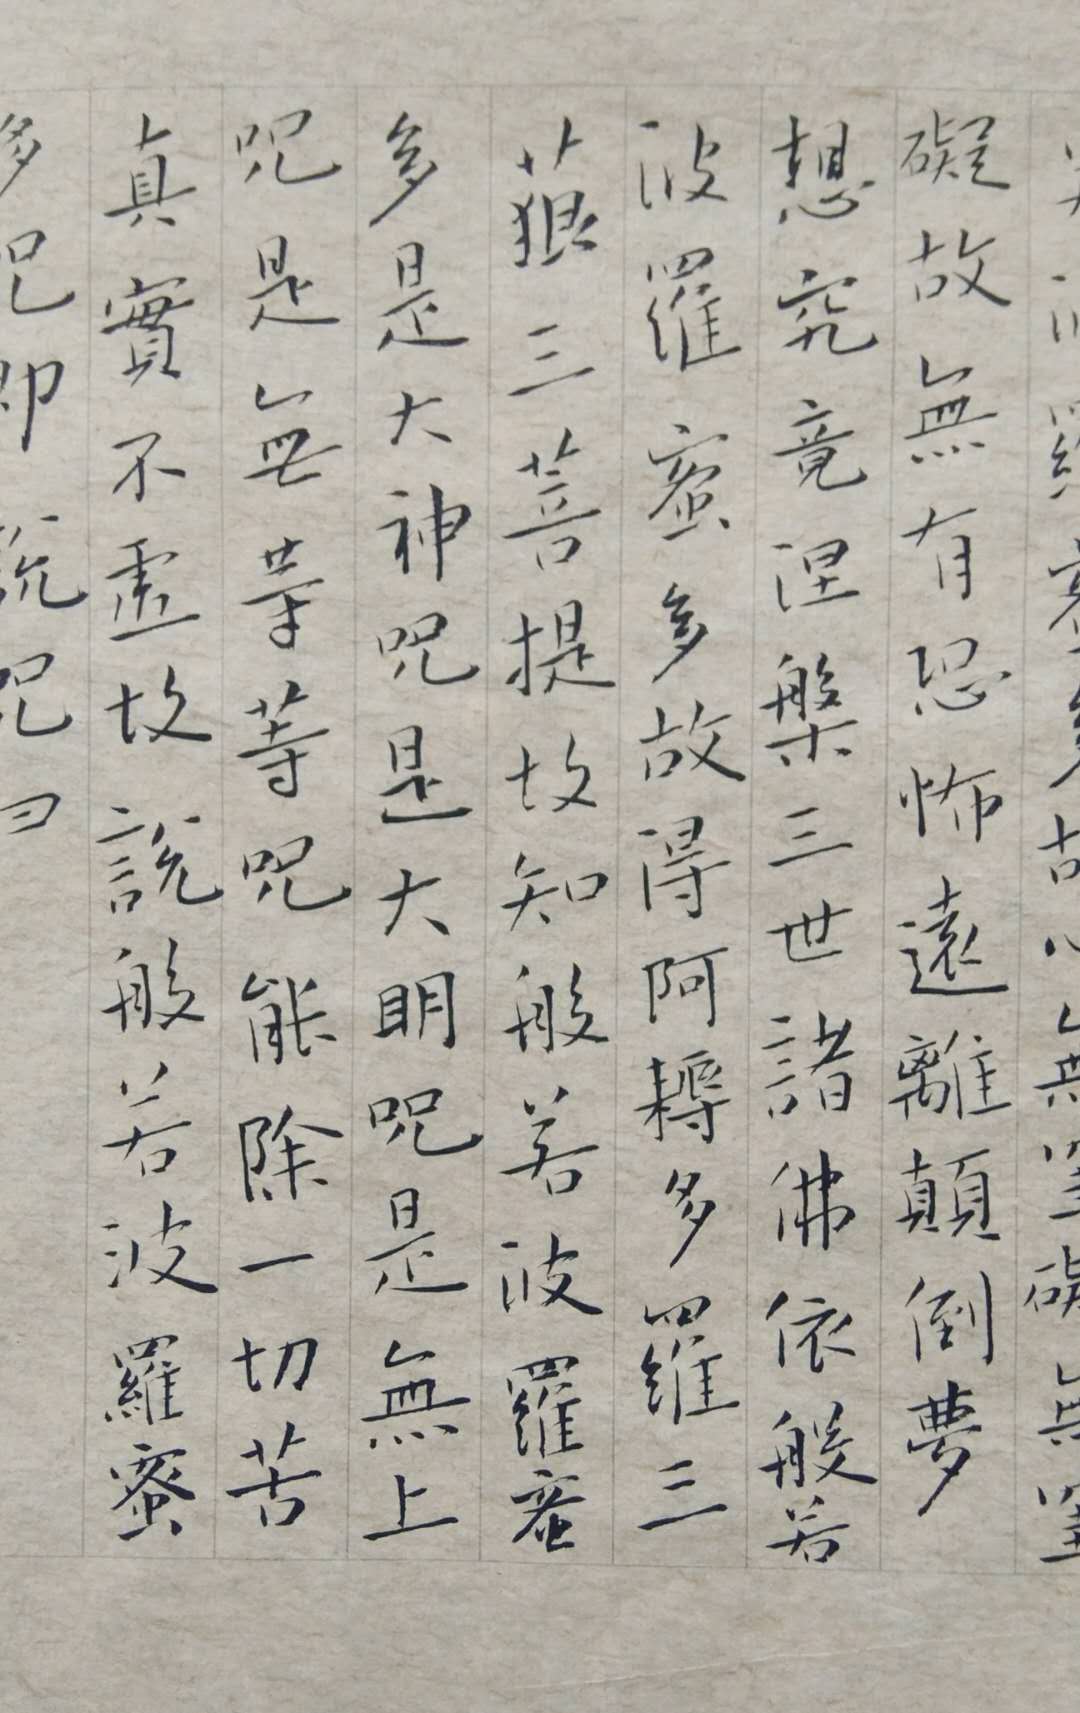 若波羅蜜多故心無罣礙無罣
礙故無有恐怖遠離顛倒夢
想究竟涅槃三世諸佛依般若
波羅蜜多故得阿耨多羅三
藐三菩提故知般若波羅蜜
多是大神咒是大明咒是無上
咒是無等等咒能除一切苦
真實不虛故說般若波羅蜜
多咒即說咒曰